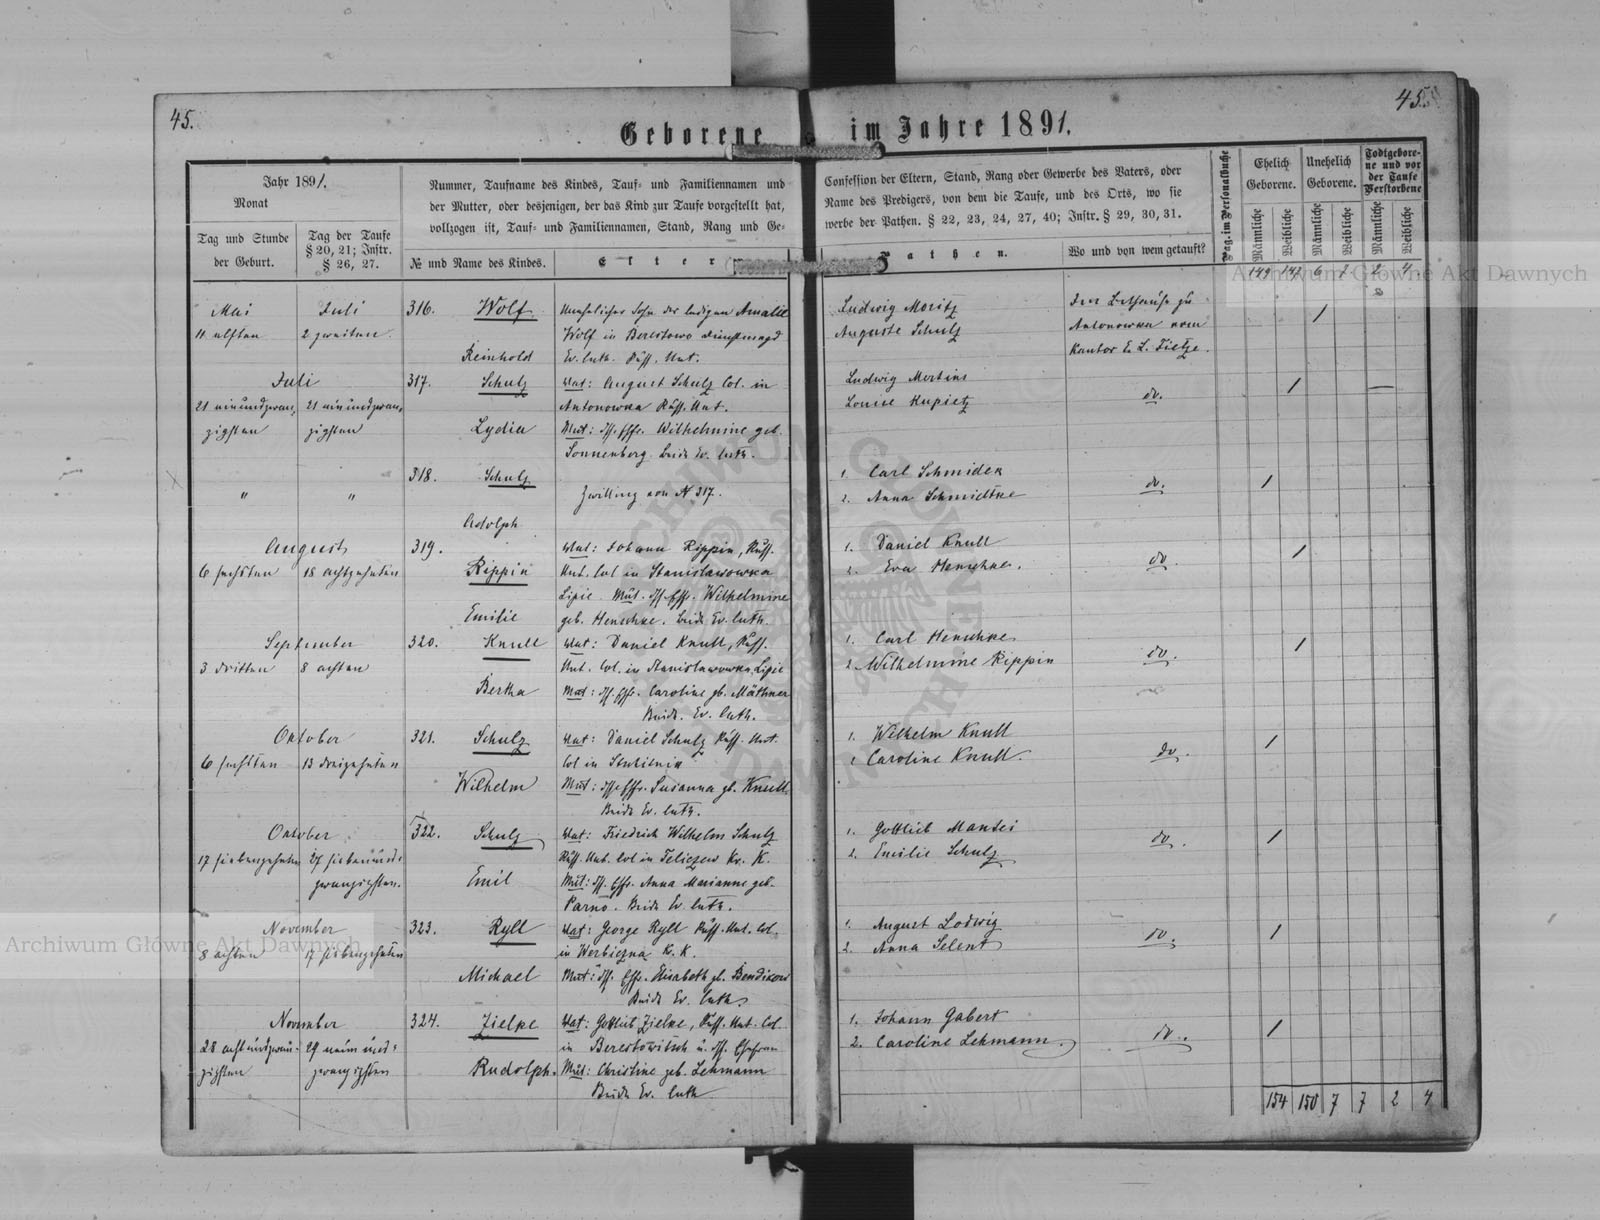 45.
45.
Geborene im Jahre 1891.
Jahr 1891.
Monat
Tag und Stunde
der Geburt.
Tag der Taufe
§ 20, 21; Instr.
§ 26, 27.
Nummer, Taufname des Kindes, Tauf- und Familiennamen und
der Mutter, oder desjenigen, der das Kind zur Taufe vorgestellt hat,
vollzogen ist, Tauf- und Familiennamen, Stand, Rang und Ge-
№ und Name des Kindes.
Elter
Confession der Eltern, Stand, Rang oder Gewerbe des Vaters, oder
Name des Predigers, von dem die Taufe, und des Orts, wo sie
werbe der Pathen. § 22, 23, 24, 27, 40; Instr. § 29, 30, 31.
Pathen.
Wo und von wem getauft?
Pag. im Personalbuche
Ehelich
Geborene.
Unehelich
Geborene.
Todtgebore-
ne und vor
der Taufe
Verstorbene
Männliche
Weibliche
Männliche
Weibliche
Männliche
Weibliche
149 147 6 7 2 4
Mai Juli 316. Wolf Unehelicher Sohn der ledigen Amalie
11 elften 2 zweiten Wolf in Berestowo Dienstmagd
Reinhold Ev. luth. Russ. Unt.
Ludwig Moritz
Auguste Schulz
Im Bethause zu
Antonowka vom
Kantor E. L. Tietze.
Juli 317. Schulz Vat: August Schulz Col. in
21 einundzwan- 21 einundzwan- Antonowka Russ. Unt.
zigsten zigsten Lydia Mut: dss. Ehfr. Wilhelmine geb.
Sonnenberg. Beide Ev. luth.
Ludwig Mertins
Louise Kupietz do.
318. Schulz
" " Zwilling von № 317.
Adolph
1. Carl Schmidek
2. Anna Schmidtke do.
August 319. Vat: Johann Rippin, Russ.
6 sechsten 18 achtzehnten Rippin Unt. Col in Stanislawowka
Lipie Mut. dss. Ehfr. Wilhelmine
Emilie geb. Henschke. Beide Ev. luth.
1. Daniel Knull
2. Eva Henschke. do
September 320. Knull Vat: Daniel Knull, Russ.
3 dritten 8 achten Unt. Col. in Stanislawowka Lipie
Bertha Mut: dss. Ehfr. Caroline gb. Mäthner
Beide. Ev. luth.
1. Carl Henschke
2. Wilhelmine Rippin do.
Oktober 321. Schulz Vat: Daniel Schulz Russ. Unt.
6 sechsten 13 dreizehnten Col in
Wilhelm Mut: dss Ehfr. Susanna gb. Knull
Beide Ev. luth.
1. Wilhelm Knull
Caroline Knull. do.
Oktober 322. Schulz Vat: Friedrich Wilhelm Schulz
17 siebenzehnten 27 siebenund- Russ. Unt. Col in Teliczew Kr. K.
zwanzigsten. Emil Mut: dss. Ehfr. Anna Marianne geb.
Parno. Beide Ev. luth.
1. Gottlieb Mantei
2. Emilie Schulz do.
November 323. Ryll Vat: George Ryll Russ. Unt. Col.
8 achten 17 siebenzehnten in Werbiczna K. K.
Michael Mut: dss. Ehfr. Elisabeth gb.
Beide Ev. luth.
1. August Lodwig
2. Anna Selent do.
November 324. Zielke Vat: Gottlieb Zielke, Russ. Unt. Col.
28 achtundzwan- 29 neunund- in Berestowitsch u. dss. Ehefrau
zigsten zwanzigsten Rudolph. Mut: Christine geb. Lehmann
Beide Ev. luth
1. Johann Gabert
2. Caroline Lehmann do.
154 150 7 7 2 4
Archiwum Główne Akt Dawnych
Archiwum Główne Akt Dawnych